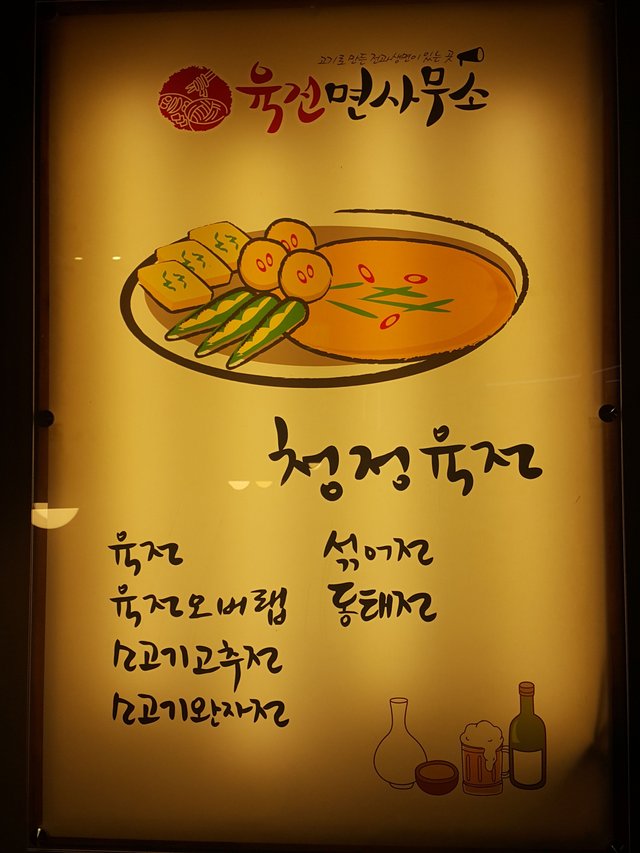 고기로 만든 전과 생면이 있는 곳
육전면사무소
청정육전
육전
육전오버랩
소고기고추전
소고기완자전
섞어전
동태전